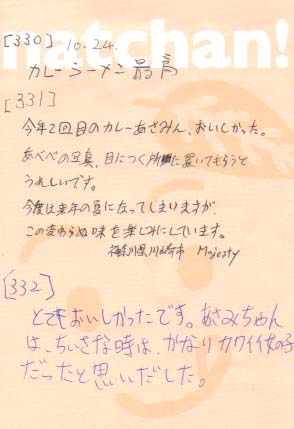 natchan!
[330] 10.24.
カレーラーメン最高
[331]
今年2回目のカレーあさみん、おいしかった。
あべべの写真、目につく所に置いてもらうと
うれしいです。
今度は来年の夏になってしまいますが、
この変わらぬ味を楽しみにしています。
神奈川県川崎市 Majesty
[332]
とてもおいしかったです。あさみちゃん
は、ちいさな時は、かなりカワイイ女の子
だったと思いだした。